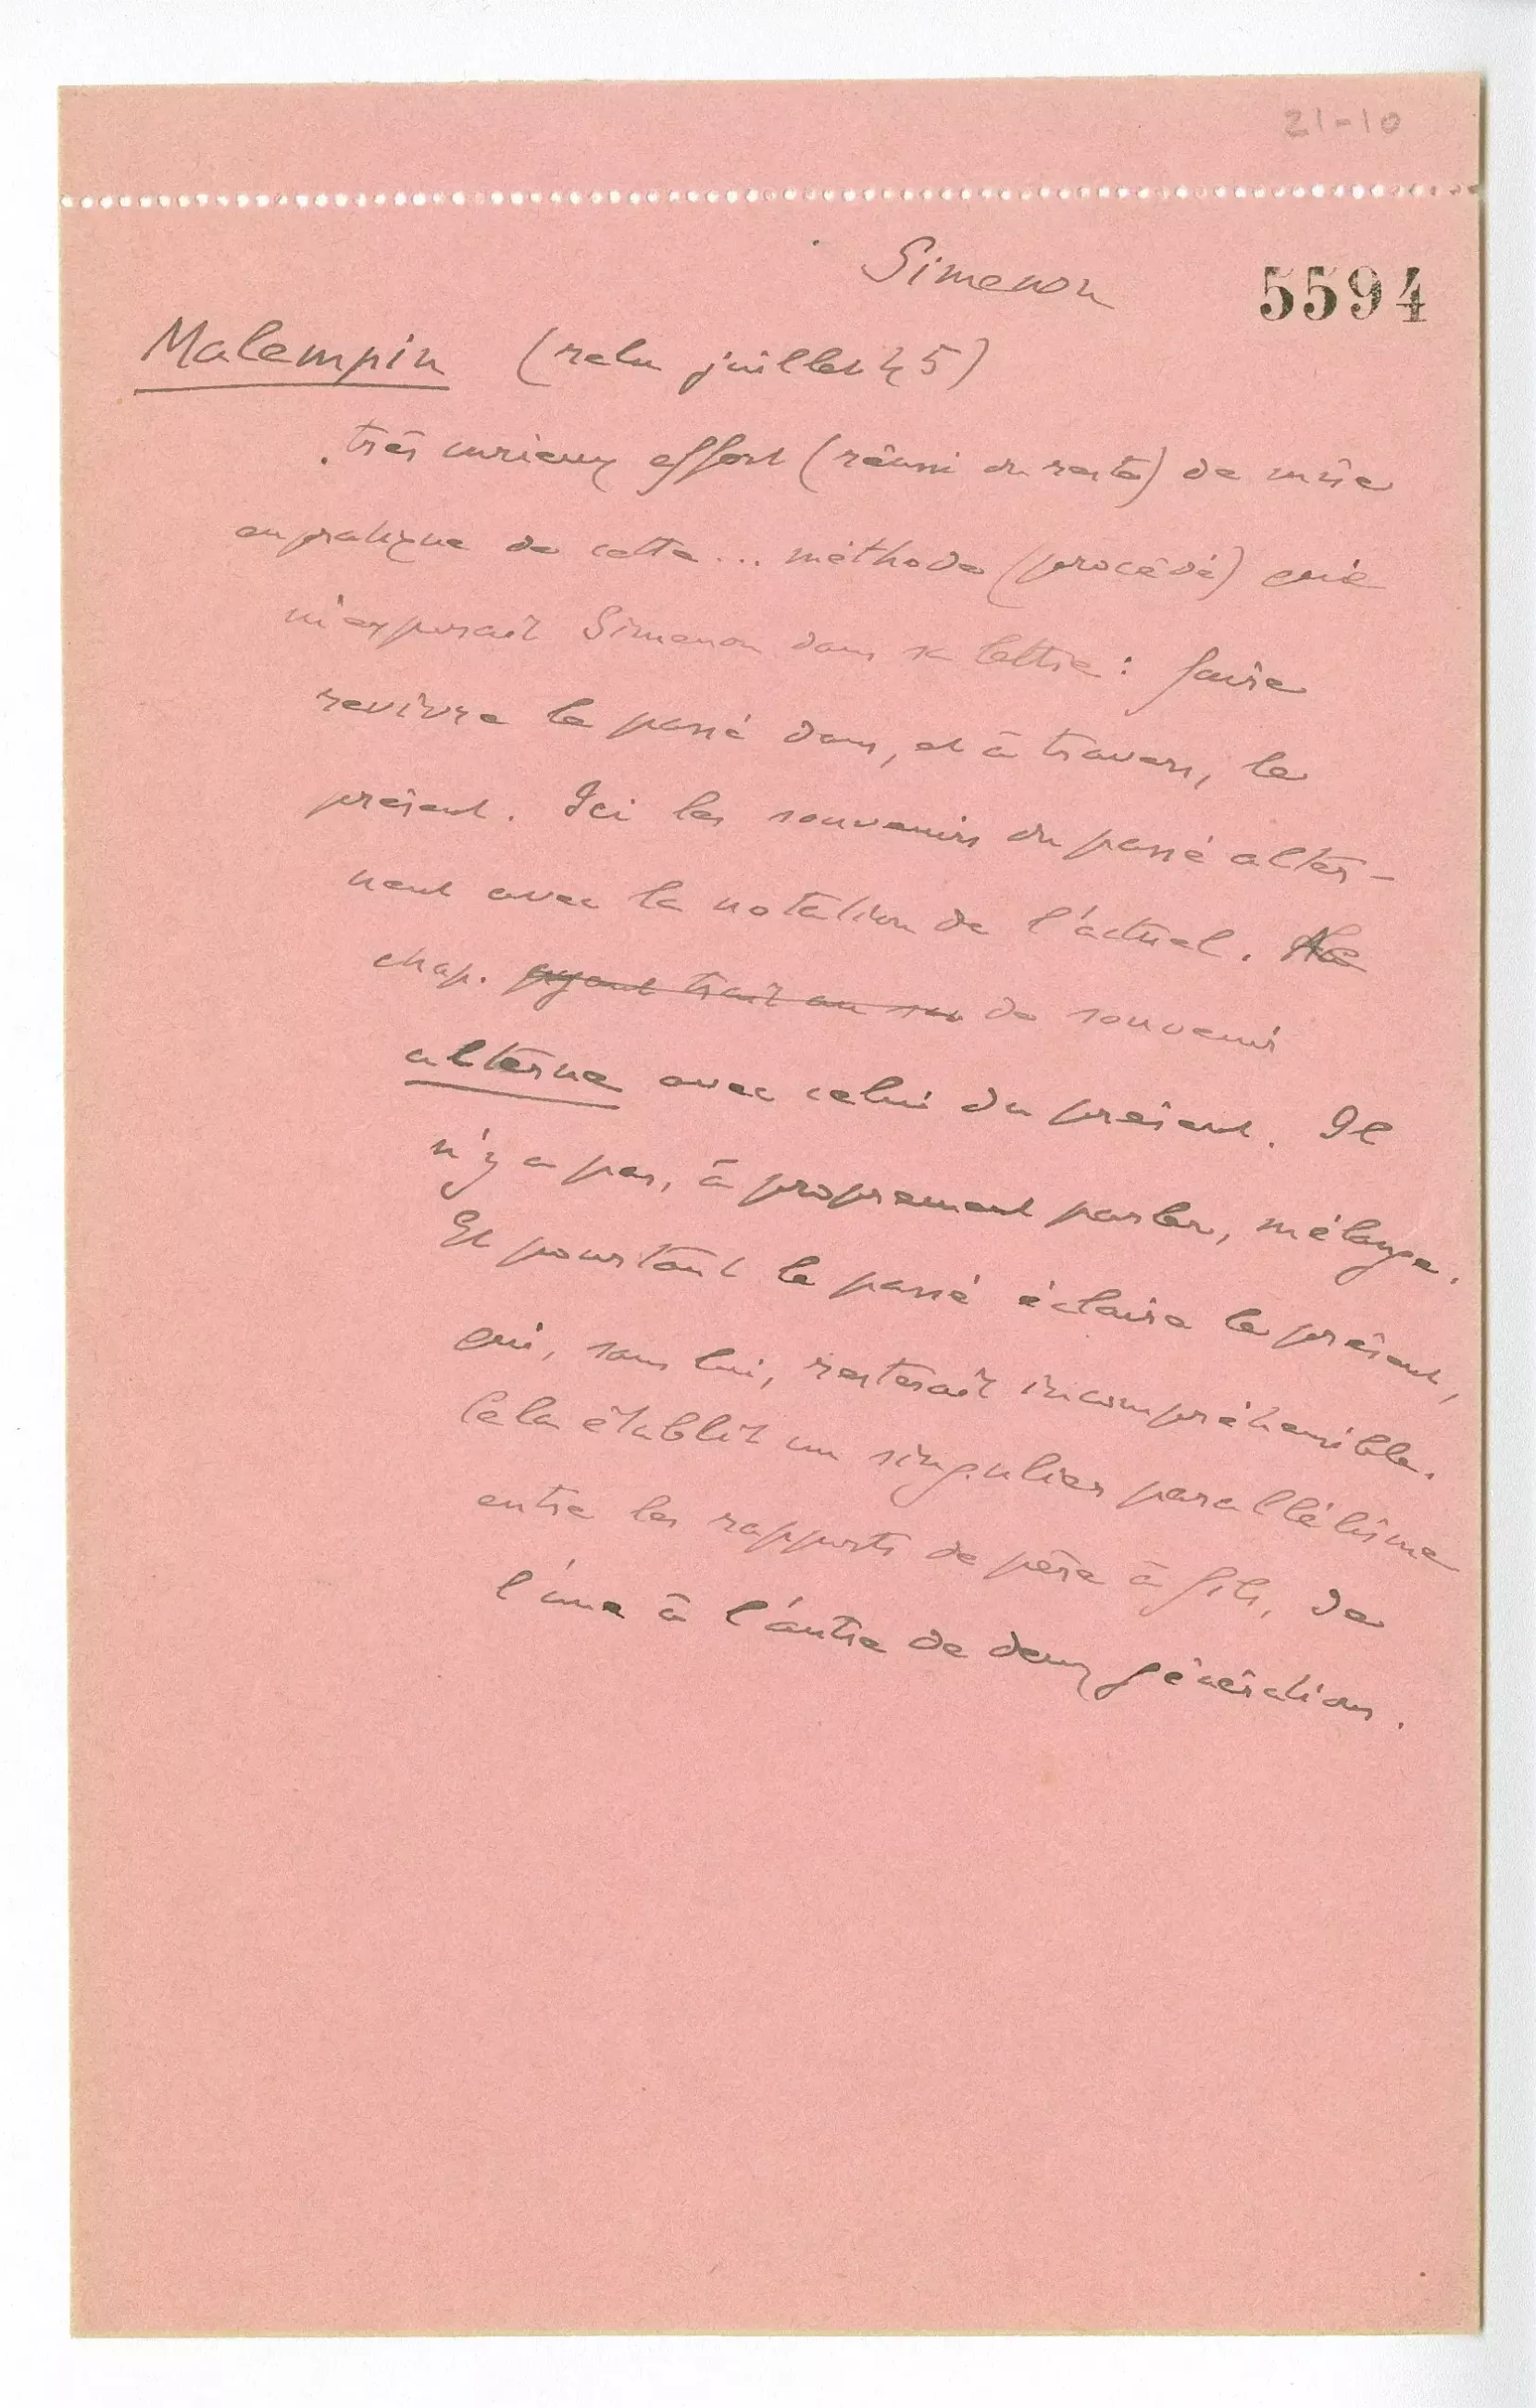 21-10
Simenon 5594
Malempin (relu juillet 45)
. très curieux effort (réussi du reste) de mise
en pratique de cette... méthode (procédé) que
m'exposait Simenon dans sa lettre : faire
revivre le passé dans, et à travers, le
présent. Ici les souvenirs du passé alter-
nent avec la notation de l'actuel. Le
chap. ayant trait au so de souvenir
alterne avec celui du présent. Il
n'y a pas, à proprement parler, mélange.
Et pourtant le passé éclaire le présent,
qui, sans lui, resterait incompréhensible.
Cela établit un singulier parallélisme
entre les rapports de père à fils, de
l'une à l'autre de deux générations.